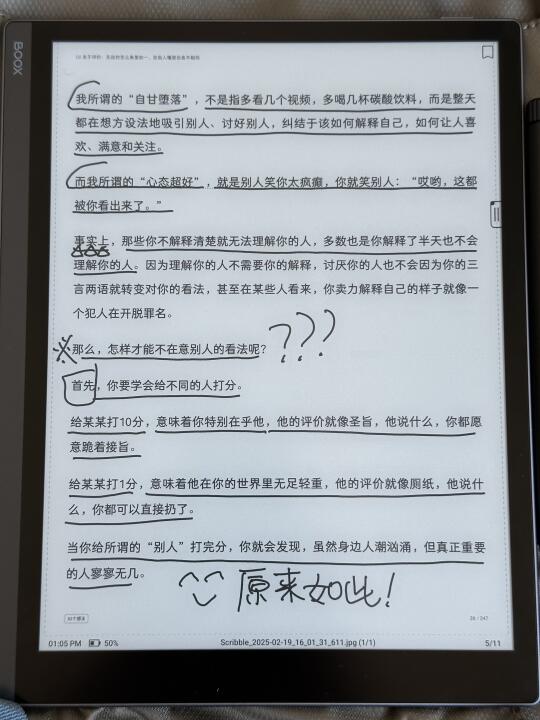 BOOX
我所谓的“自甘堕落”，不是指多看几个视频，多喝几杯碳酸饮料，而是整天
都在想方设法地吸引别人、讨好别人，纠结于该如何解释自己，如何让人喜
欢、满意和关注。
而我所谓的“心态超好”，就是别人笑你太疯癫，你就笑别人：“哎哟，这都
被你看出来了。”
事实上，那些你不解释清楚就无法理解你的人，多数也是你解释了半天也不会
理解你的人。因为理解你的人不需要你的解释，讨厌你的人也不会因为你的三
言两语就转变对你的看法，甚至在某些人看来，你卖力解释自己的样子就像一
个犯人在开脱罪名。
???
※那么，怎样才能不在意别人的看法呢？
首先，你要学会给不同的人打分。
给某某打10分，意味着你特别在乎他，他的评价就像圣旨，他说什么，你都愿
意跪着接旨。
给某某打1分，意味着他在你的世界里无足轻重，他的评价就像厕纸，他说什
么，你都可以直接扔了。
当你给所谓的“别人”打完分，你就会发现，虽然身边人潮汹涌，但真正重要
的人寥寥无几。
原来如此！
26 / 247
01:05 PM 50% Scribble_2025-02-19_16_01_31_611.jpg (1/1) 5/11